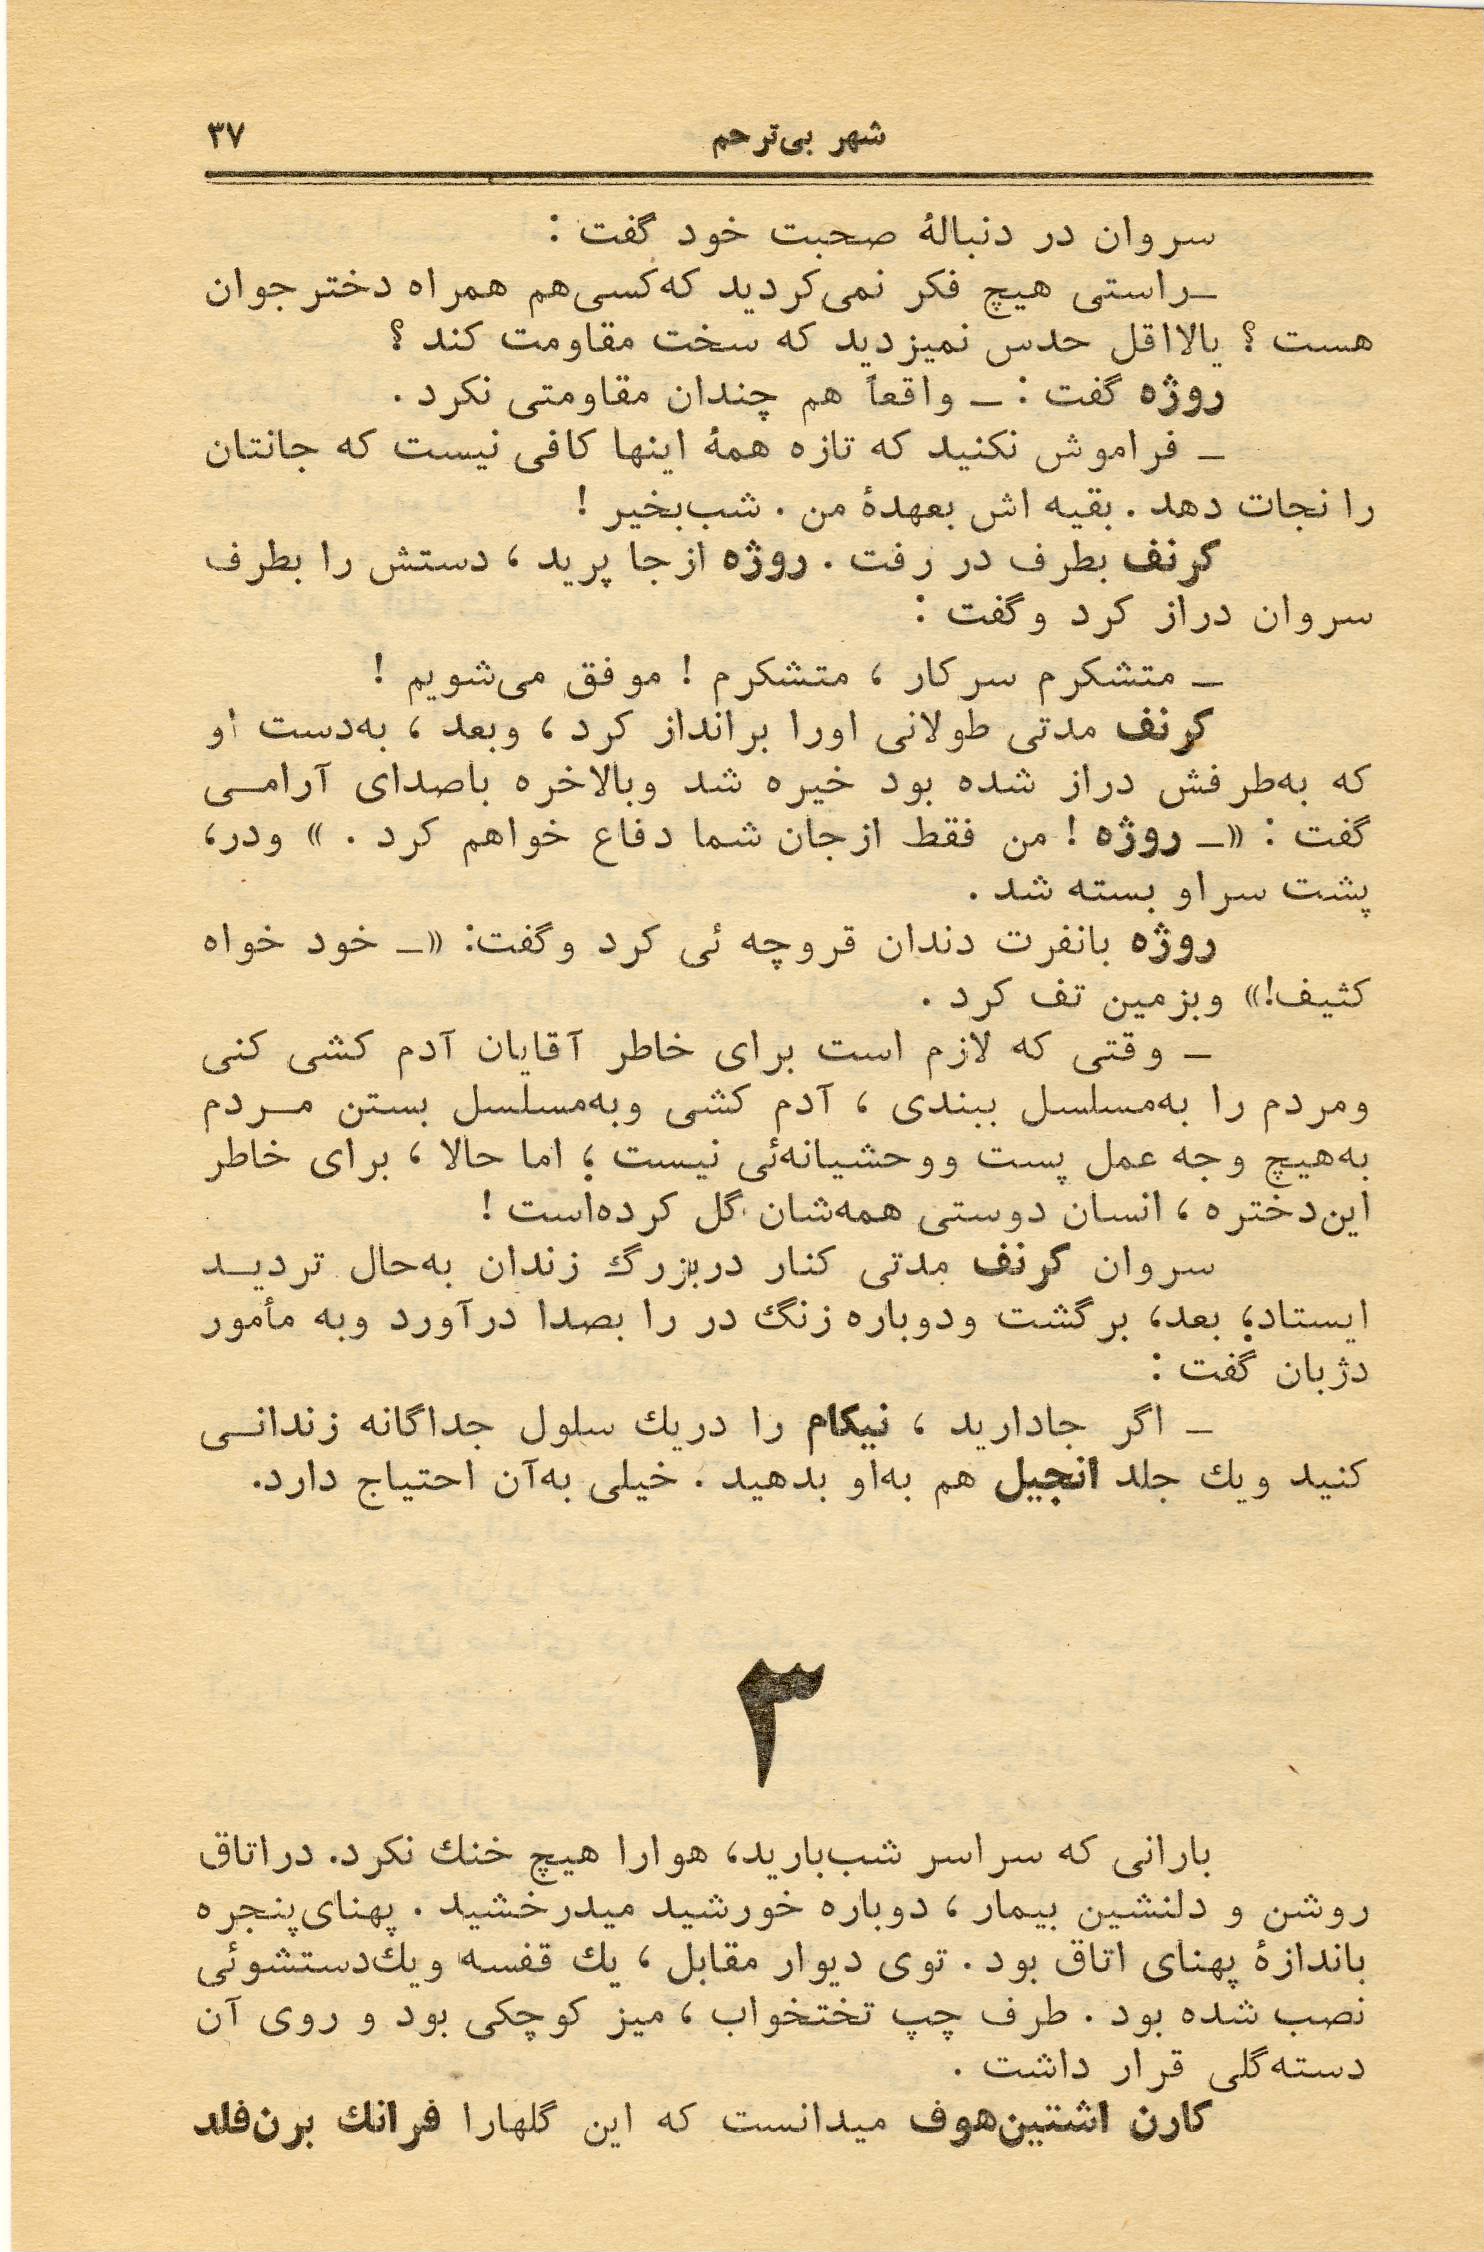 شهر بی‌ترحم ۳۷
سروان در دنبالهٔ صحبت خود گفت :
ـراستی هیچ فکر نمی‌کردید که‌کسی‌هم همراه دخترجوان
هست ؟ یالااقل حدس نمیزدید که سخت مقاومت کند ؟
روژه گفت : ـ واقعاً هم چندان مقاومتی نکرد .
ـ فراموش نکنید که تازه همهٔ اینها کافی نیست که جانتان
را نجات دهد . بقیه اش بعهدهٔ من . شب‌بخیر !
کرنف بطرف در رفت . روژه ازجا پرید ، دستش را بطرف
سروان دراز کرد وگفت :
ـ متشکرم سرکار ، متشکرم ! موفق می‌شویم !
کرنف مدتی طولانی اورا برانداز کرد ، وبعد ، به‌دست او
که به‌طرفش دراز شده بود خیره شد وبالاخره باصدای آرامـی
گفت : «ـ روژه ! من فقط ازجان شما دفاع خواهم کرد . » ودر،
پشت سراو بسته شد .
روژه بانفرت دندان قروچه ئی کرد وگفت: «ـ خود خواه
کثیف!» وبزمین تف کرد .
ـ وقتی که لازم است برای خاطر آقایان آدم کشی کنی
ومردم را به‌مسلسل ببندی ، آدم کشی وبه‌مسلسل بستن مـردم
به‌هیچ وجه عمل پست ووحشیانه‌ئی نیست ؛ اما حالا ، برای خاطر
این‌دختره ، انسان دوستی همه‌شان گل کرده‌است !
سروان کرنف مدتی کنار دربزرگ زندان به‌حال تردیـد
ایستاد؛ بعد، برگشت ودوباره زنگ در را بصدا درآورد وبه مأمور
دژبان گفت :
ـ اگر جادارید ، نیکام را دریك سلول جداگانه زندانـی
کنید ویك جلد انجیل هم به‌او بدهید . خیلی به‌آن احتیاج دارد.
۳
بارانی که سراسر شب‌بارید، هوارا هیچ خنك نکرد. دراتاق
روشن و دلنشین بیمار ، دوباره خورشید میدرخشید . پهنای‌پنجره
باندازهٔ پهنای اتاق بود . توی دیوار مقابل ، یك قفسه ویك‌دستشوئی
نصب شده بود . طرف چپ تختخواب ، میز کوچکی بود و روی آن
دسته‌گلی قرار داشت .
کارن اشتین‌هوف میدانست که این گلهارا فرانك برن‌فلد